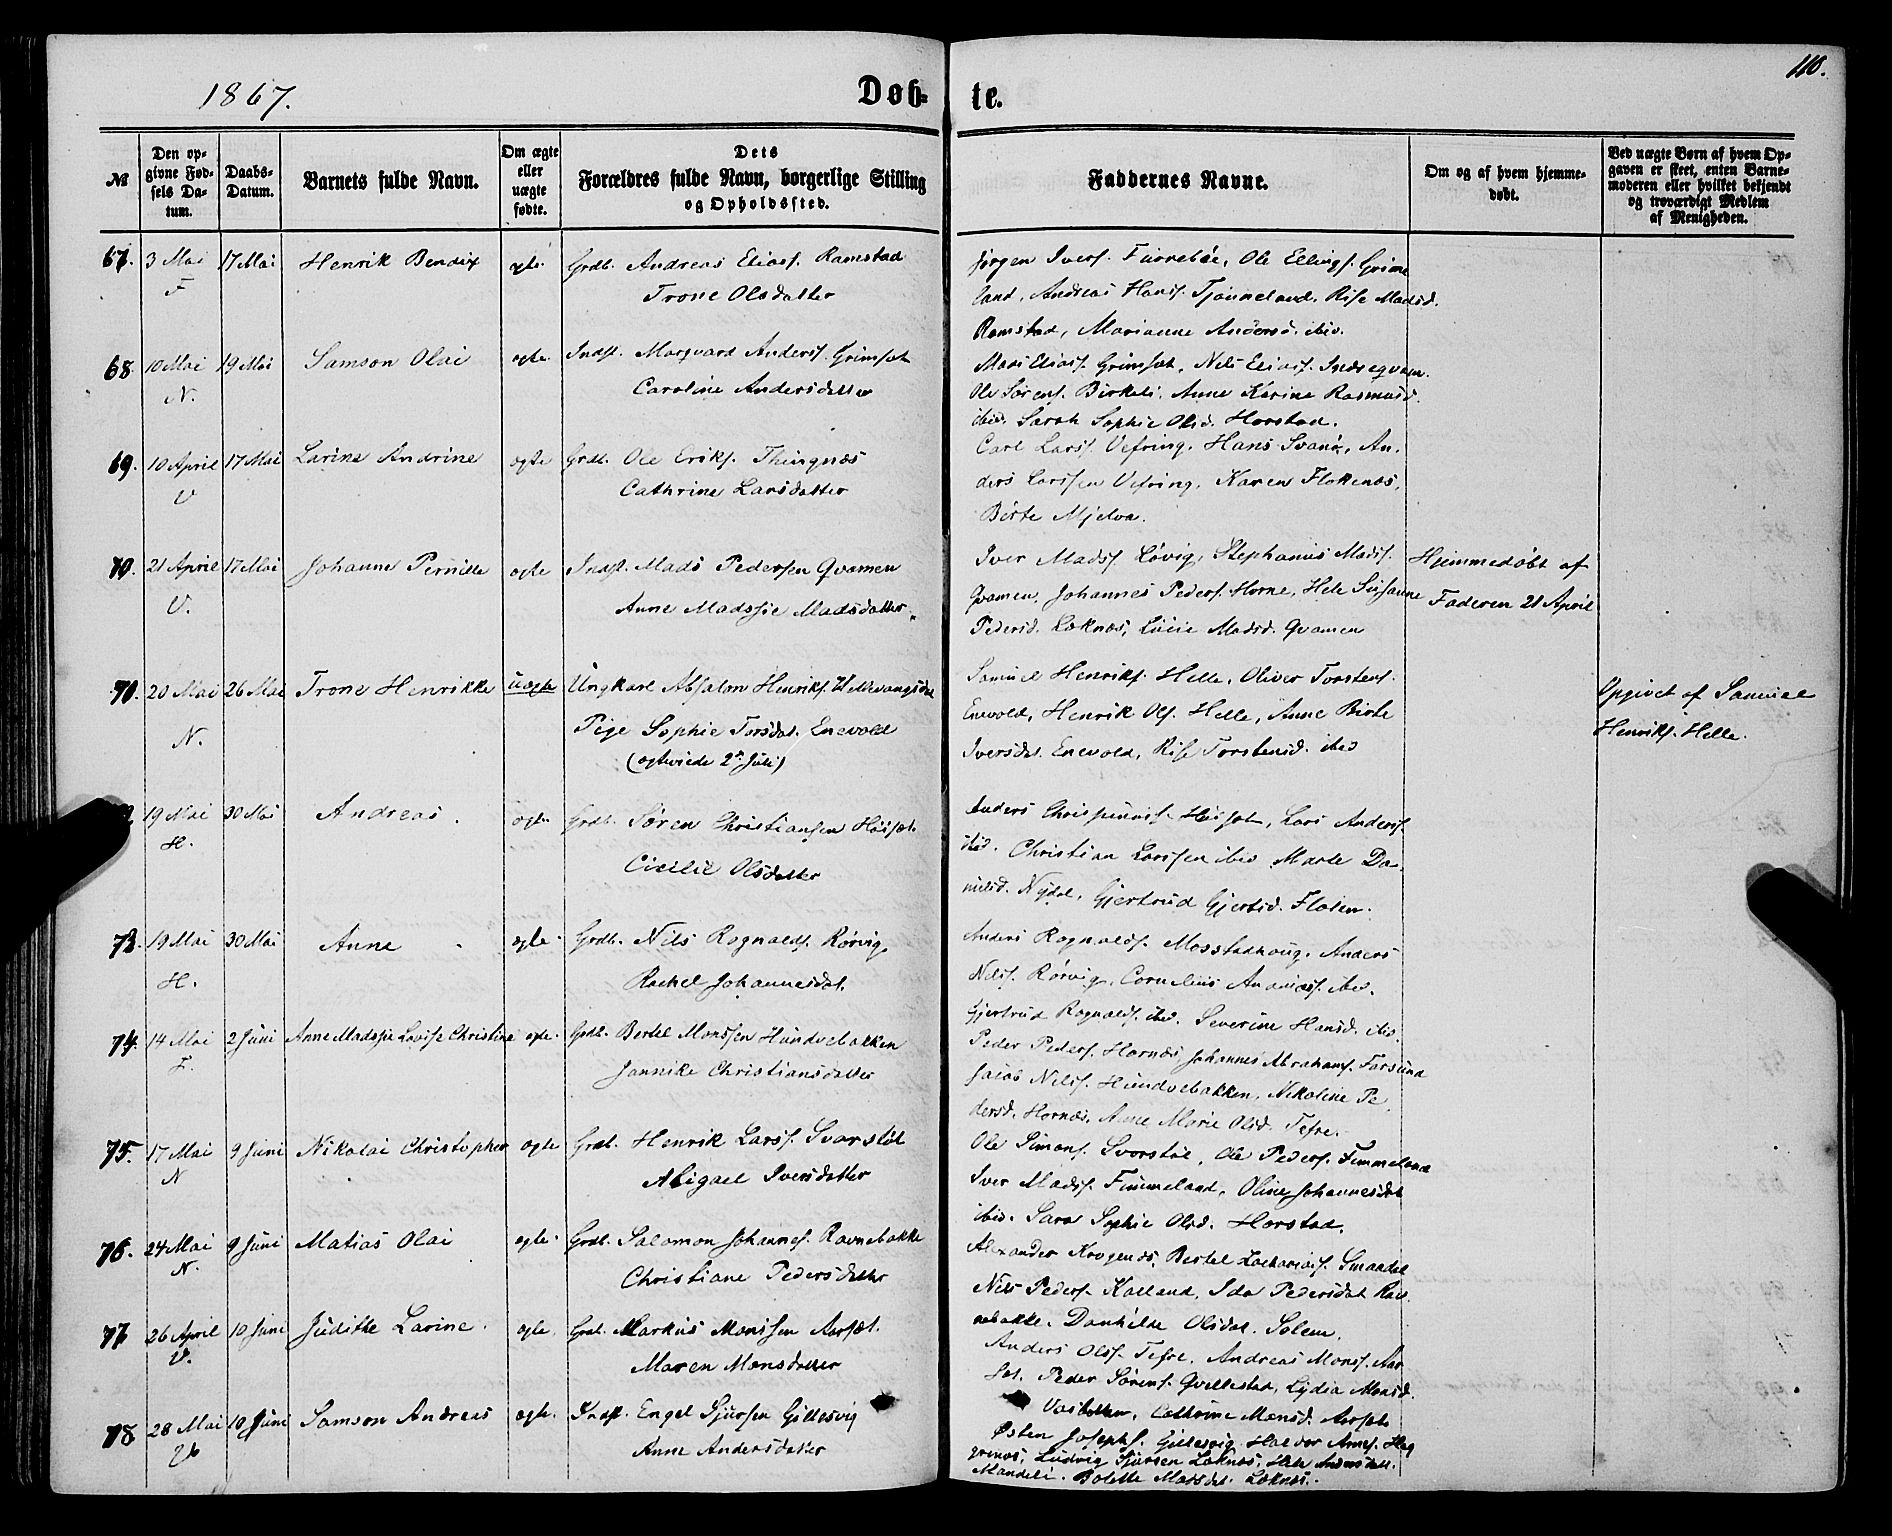 110.
1867.
Døb- te.
№
Den op-
givne Fød-
sels Da-
tum.
Daabs-
Datum.
Barnets fulde Navn.
Om ægte
eller
uægte
fødte.
Dets
Forældres fulde Navn, borgerlige Stilling
og Opholdssted.
Faddernes Navne.
Om og af hvem hjemme-
døbt.
Ved uægte Børn af hvem Op-
gaven er skeet, enten Barne-
moderen eller hvilket bekjendt
og troværdigt Medlem
af Menigheden.
67. 3 Mai 17 Mai Henrik Bendix ægte. Grdb. Andreas Eliass. Ramstad
F Trone Olsdatter
Jørgen Ivers. Furrebøe, Ole Ellings. Grime
land, Andreas Hans. Tjønneland, Rise Madsd.
Ramstad, Marianne Andersd. ibid.
68. 10 Mai 19 Mai Samson Olai ægte Indst. Marqvard Anders. Grimsæt
N. Caroline Andersdatter
Mads Eliass. Grimsæt, Nils Eliass. Indreqvam.
Ole Sørens. Birkeli, Anne Karine Rasmusd.
ibid. Sarah Sophie Olsd. Horstad.
69. 10 April 17 Mai Larine Andrine ægte Grdb. Ole Eriks. Thingnæs
V Cathrine Larsdatter
Carl Larss. Vefring, Hans Svanø, An-
ders Larssen Vefring, Karen Flokenæs,
Birte Mjelva.
70. 21 April 17 Mai Johanne Pernille ægte Indst. Mads Pedersen Qvamen
V. Anne Madssie Madsdatter
Iver Madss. Løvig, Stephanus Madss.
Qvamen, Johannes Peders. Horne, Hele Susanne
Pedersd. Løknæs, Lucie Madsd. Qvamen
Hjemmedøbt af
Faderen 21 April
71. 20 Mai 26 Mai Trone Henrikke uægte Ungkarl Absalon Henriks. Hellevangsdal
N. Pige Sophie Torsdat. Enevold
(ægtviede 2den Juli)
Samuel Henriks. Helle, Oliver Torstens.
Enevold, Henrik Ols. Helle, Anne Birte
Iversdat. Enevold, Rise Torstensd. ibid
Opgivet af Samuel
Henriks. Helle.
19 Mai 30 Mai Andreas. ægte Grdb. Søren Christiansen Høisæt.
H. Cicilie Olsdatter
Anders Høisæt, Lars Anderss.
ibid. Christian Larssen ibid Marte Da-
nielsd. Nydal, Gjertrud Gjertsd. Floten.
73. 19 Mai 30 Mai Anne ægte Grdb. Nils Rognalds. Rørvig
H. Rachel Johannesdat.
Anders Rognalds. Mosstadhoug, Anders
Nilss. Rørvig, Cornelius Ananiass. ibid.
Gjertrud Rognalds. ibid. Severine Hansd. ibid.
74. 14 Mai 2 Juni Anne Madssie Lovise Christine ægte. Grdb. Bertel Monssen Hundvebakken
F. Jannike Christiansdatter
Peder Peders. Hornæs, Johannes Abrahams. Farsund
Jacob Nilss. Hundvebakken, Nikoline Pe-
dersd. Hornæs, Anne Marie Olsd. Tefre.
75. 17 Mai 9 Juni Nikolai Christopher ægte Grdb. Henrik Larss. Svarstøl
N Abigael Iversdatter
Ole Simons. Svorstøl, Ole Peders. Fimmeland
Iver Madss. Fimmeland, Oline Johannesdat
ibid. Sara Sophie Olsd. Horstad.
76. 24 Mai 9 Juni Matias Olai ægte. Grdb. Salomon Johannes. Ravnebakke
N. Christiane Pedersdatter
Alexander Krogenæs, Bertel Zachariass. Smaadal
Nils Peders. Kalland, Ida Pedersdat Rav-
nebakke. Danhilde Olsdat. Solem.
77 26 April 10 Juni Judithe Larine. ægte. Grdb. Markus Monssen Aarsæt.
V. Maren Monsdatter
Anders Olss. Tefre, Andreas Monss. Aar-
sæt, Peder Sørens. Qvellestad, Lydia Monsd.
Cathrine Monsd. Aarsæt
78 28 Mai 10 Juni Samson Andreas ægte. Indst. Engel Sjursen Gillesvig
Anne Andersdatter
Østen Josephs. Gillesvig, Haldor
Ludvig Sjursen Løknæs,
Bolette Madsdat. Løknæs.